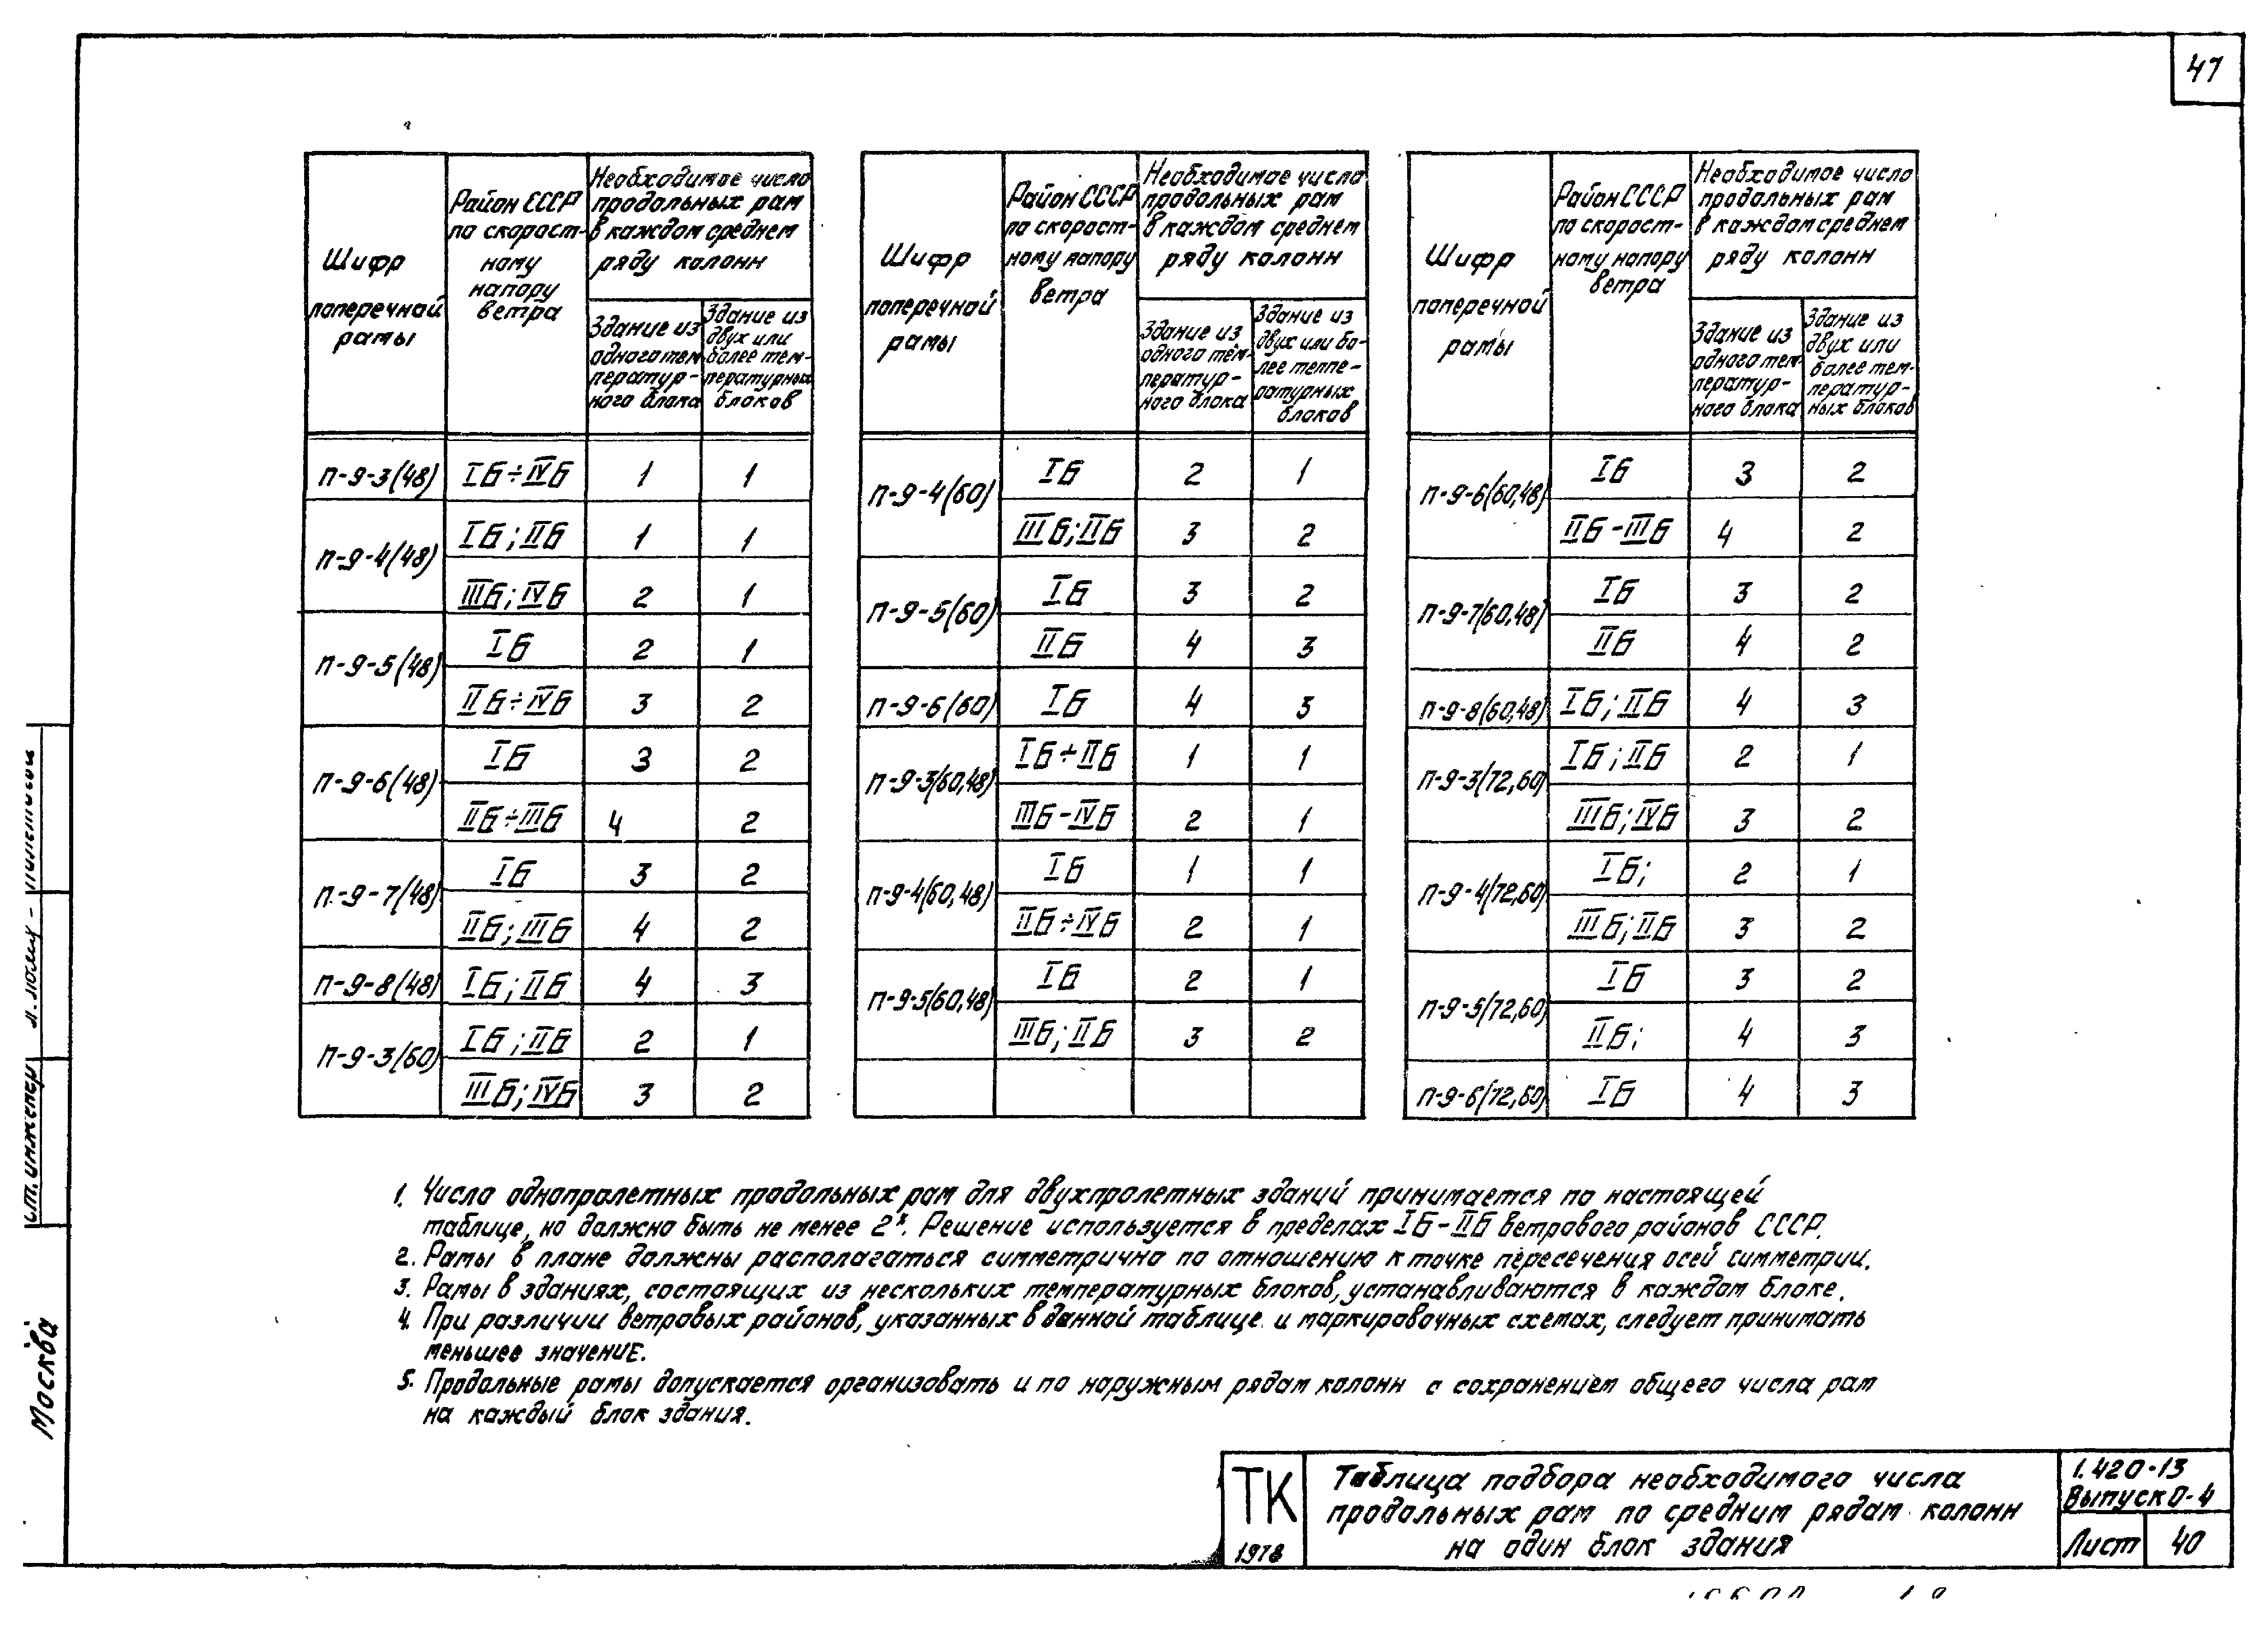 47
Шифр
поперечной
рамы
Район СССР
по скорост-
ному
напору
ветра
Необходимое число
продольных рам
в каждом среднем
ряду колонн
Здание из
одного тем
ператур-
ного блока
Здание из
двух или
более тем-
пературных
блоков
П-9-3(48) IБ÷IVБ 1 1
П-9-4(48) IБ;IIБ 1 1
IIIБ;IVБ 2 1
П-9-5(48) IБ 2 1
IIБ÷IVБ 3 2
П-9-6(48) IБ 3 2
IIБ÷IIIБ 4 2
П-9-7(48) IБ 3 2
IIБ;IIIБ 4 2
П-9-8(48) IБ;IIБ 4 3
П-9-3(60) IБ;IIБ 2 1
IIIБ;IVБ 3 2
Шифр
поперечной
рамы
Район СССР
по скорост-
ному напору
ветра
Необходимое число
продольных рам
в каждом среднем
ряду колонн
Здание из
одного тем-
ператур-
ного блока
Здание из
двух или бо-
лее темпе-
ратурных
блоков
П-9-4(60) IБ 2 1
IIIБ;IIБ 3 2
П-9-5(60) IБ 3 2
IIБ 4 3
П-9-6(60) IБ 4 3
П-9-3(60,48) IБ÷IIБ 1 1
IIIБ-IVБ 2 1
П-9-4(60,48) IБ 1 1
IIБ÷IVБ 2 1
П-9-5(60,48) IБ 2 1
IIIБ;IIБ 3 2
Шифр
поперечной
рамы
Район СССР
по скорост-
ному напору
ветра
Необходимое число
продольных рам
в каждом среднем
ряду колонн
Здание из
одного тем
ператур-
ного блока
Здание из
двух или
более тем-
ператур-
ных блоков
П-9-6(60,48) IБ 3 2
IIБ-IIIБ 4 2
П-9-7(60,48) IБ 3 2
IIБ 4 2
П-9-8(60,48) IБ;IIБ 4 3
П-9-3(72,60) IБ;IIБ 2 1
IIIБ;IVБ 3 2
П-9-4(72,60) IБ; 2 1
IIIБ;IIБ 3 2
П-9-5(72,60) IБ 3 2
IIБ; 4 3
П-9-6(72,60) IБ 4 3
1. Число однопролетных продольных рам для двухпролетных зданий принимается по настоящей
таблице, но должно быть не менее 2х. Решение используется в пределах IБ-IIБ ветрового районов СССР.
2. Рамы в плане должны располагаться симметрично по отношению к точке пересечения осей симметрии.
3. Рамы в зданиях, состоящих из нескольких температурных блоков, устанавливаются в каждом блоке.
4. При различии ветровых районов, указанных в данной таблице и маркировочных схемах, следует принимать
меньшее значение.
5. Продольные рамы допускается организовать и по наружным рядам колонн с сохранением общего числа рам
на каждый блок здания.
ст. инженер
Москва
ТК
1978
Таблица подбора необходимого числа
продольных рам по средним рядам колонн
на один блок здания
1.420-13
Выпуск 0-4
Лист 40